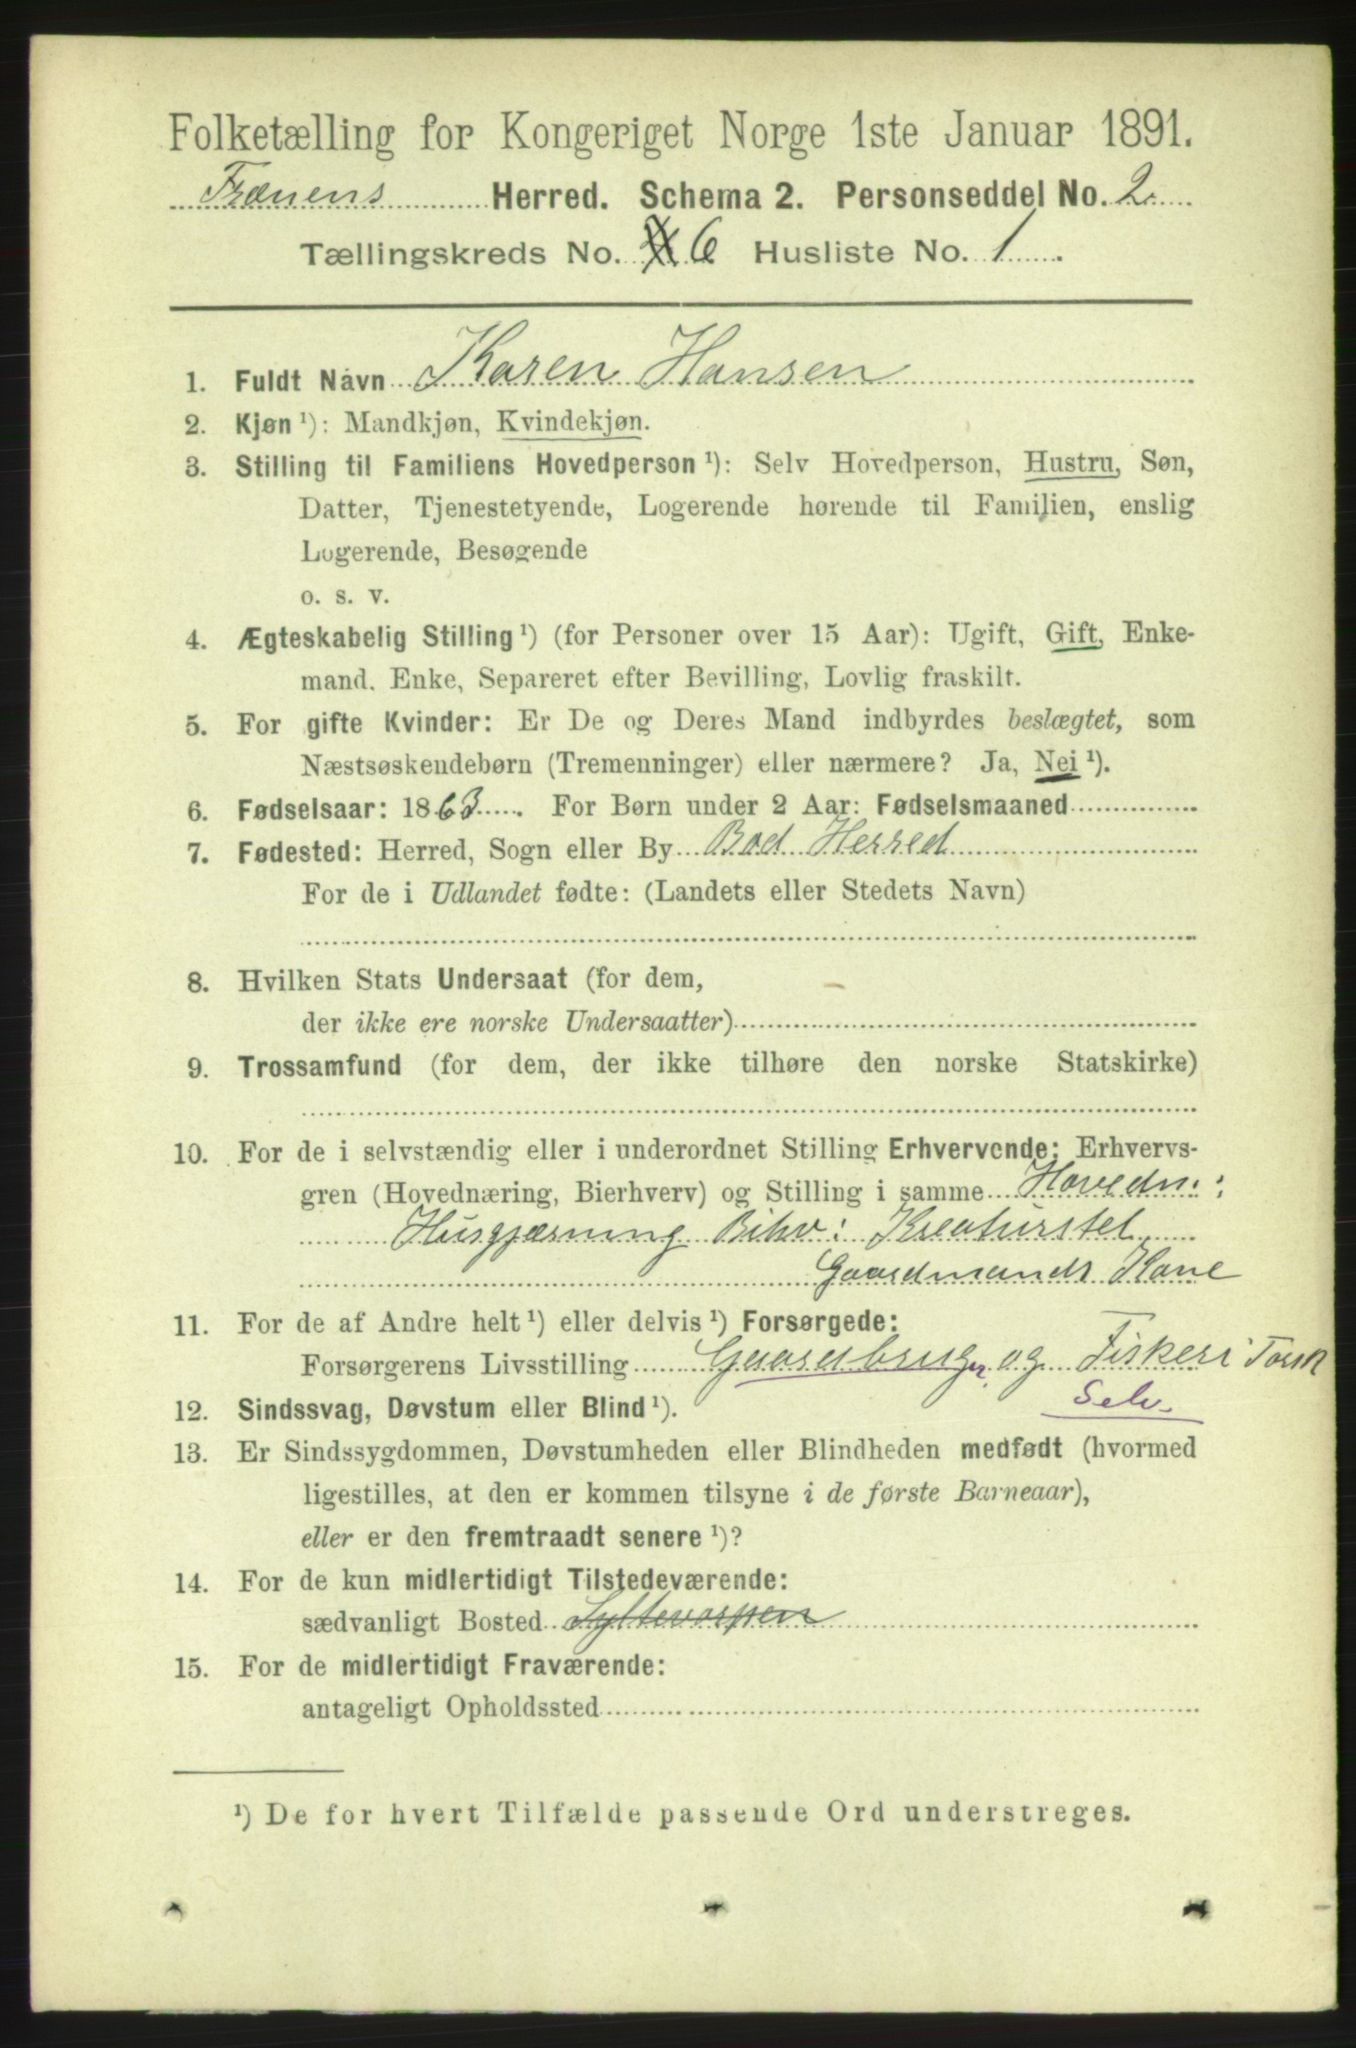 Folketælling for Kongeriget Norge 1ste Januar 1891.
Frænens Herred. Schema 2. Personseddel No. 2.
Tællingskreds No. 6 Husliste No. 1
1. Fuldt Navn Karen Hansen
2. Kjøn ¹): Mandkjøn, Kvindekjøn.
3. Stilling til Familiens Hovedperson ¹): Selv Hovedperson, Hustru, Søn,
Datter, Tjenestetyende, Logerende hørende til Familien, enslig
Logerende, Besøgende
o. s. v.
4. Ægteskabelig Stilling ¹) (for Personer over 15 Aar): Ugift, Gift, Enke-
mand, Enke, Separeret efter Bevilling, Lovlig fraskilt.
5. For gifte Kvinder: Er De og Deres Mand indbyrdes beslægtet, som
Næstsøskendebørn (Tremenninger) eller nærmere? Ja, Nei ¹).
6. Fødselsaar: 1863. For Børn under 2 Aar: Fødselsmaaned
7. Fødested: Herred, Sogn eller By Bod Herred
For de i Udlandet fødte: (Landets eller Stedets Navn)
8. Hvilken Stats Undersaat (for dem,
der ikke ere norske Undersaatter)
9. Trossamfund (for dem, der ikke tilhøre den norske Statskirke)
10. For de i selvstændig eller i underordnet Stilling Erhvervende: Erhvervs-
gren (Hovednæring, Bierhverv) og Stilling i samme Hovedn.:
Husgjærning Bihv: Kreaturstel
Gaardmands Kone
11. For de af Andre helt ¹) eller delvis ¹) Forsørgede:
Forsørgerens Livsstilling Gaardbruger og Fiskeri Torsk
Selv.
12. Sindssvag, Døvstum eller Blind ¹).
13. Er Sindssygdommen, Døvstumheden eller Blindheden medfødt (hvormed
ligestilles, at den er kommen tilsyne i de første Barneaar),
eller er den fremtraadt senere ¹)?
14. For de kun midlertidigt Tilstedeværende:
sædvanligt Bosted Syltevarpen
15. For de midlertidigt Fraværende:
antageligt Opholdssted
¹) De for hvert Tilfælde passende Ord understreges.